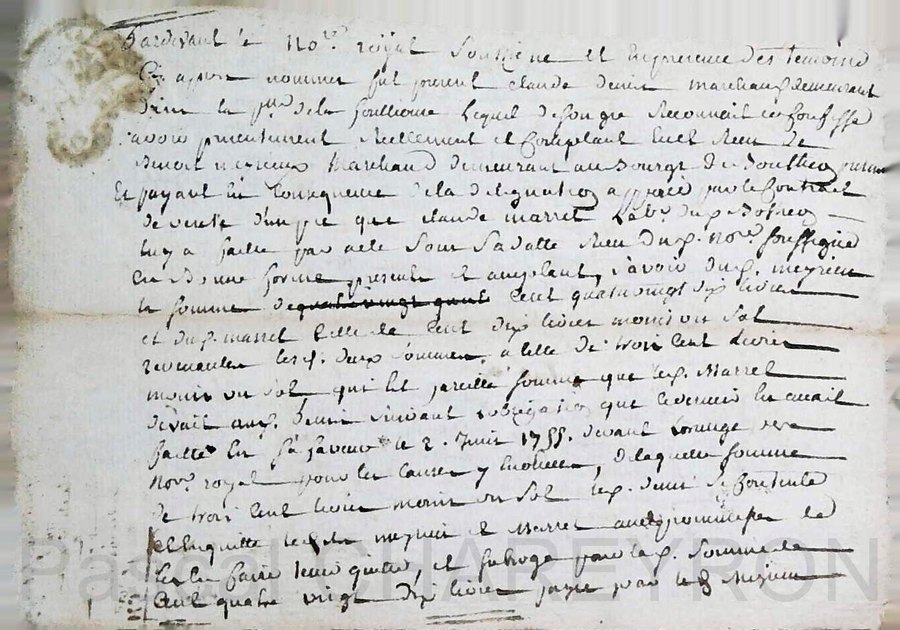 Pardevant le No.re royal Soussigne et En presence des temoins
Cy apres nommes fut present claude denis marchand demeurant
lequel de son gre Reconnait et Confesse
avoir presentement Reellement et Comptant Recu de
Benoit meyrieux Marchand demeurant au Bourg de
Et payant En Consequence de la delegation a par le Contract
de vente que claude marret
luy a faitte par acte Sous Sa datte Recu dud. No.re soussigne
En Bonne forme, presents et acceptant, Scavoir dud. meyrieu
la somme de quatre vingt Cent quatre vingt dix livres
et dud. marret Celle de Cent dix livres moins un Sol
revenantes lesd. deux Sommes, a Celle de trois Cent livres
moins un Sol, qui Est pareille somme que led. Marret
devait aud. denis suivant obligation que ce dernier En avait
faitte En Sa faveur le 2. Juin 1755. devant
No.re royal pour les Causes y Enoncees, de laquelle somme
de trois Cent livres moins un Sol led. denis Se Contente
et En quitte meyrieu et Marret avec promesse de
les En faire tenir quittes, et subroge pour lad. Somme de
Cent quatre vingt dix livres payee par led meyrieu
Pascal CHAREYRON